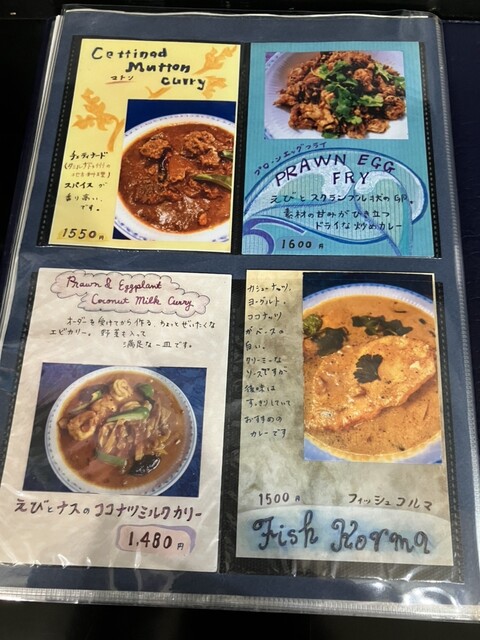 Cettinad
Mutton
Curry
マトン
チェティナード
スパイスが
香り高い
です。
1550円
プローンエッグフライ
PRAWN EGG
FRY
えびとスクランブル状の卵。
素材の甘みがひき立つ
ドライな炒めカレー
1600円
Prawn & Eggplant
Coconut Milk Curry
オーダーを受けてから作る、ちょっとぜいたくな
エビカリー。野菜も入って
満足な一皿です。
えびとナスのココナツミルクカリー
1,480円
カシューナッツ、
ヨーグルト、
ココナッツ
がベースの
白い、
クリーミーな
ソースですが
後味は
すっきりしていて
おすすめの
カレーです
1500円
フィッシュコルマ
Fish Korma